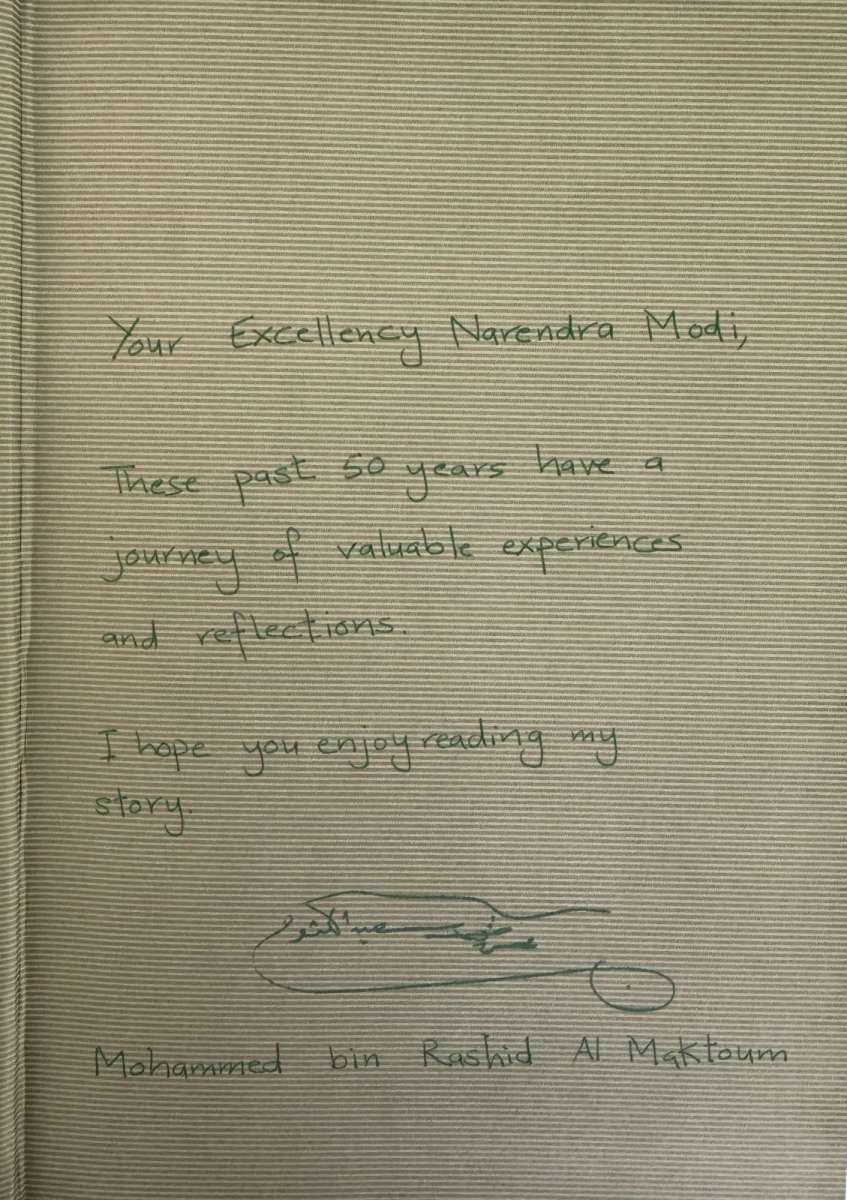 Your Excellency Narendra Modi,
These past 50 years have a
journey of valuable experiences
and reflections.
I hope you enjoy reading my
story.
Mohammed bin Rashid Al Maktoum